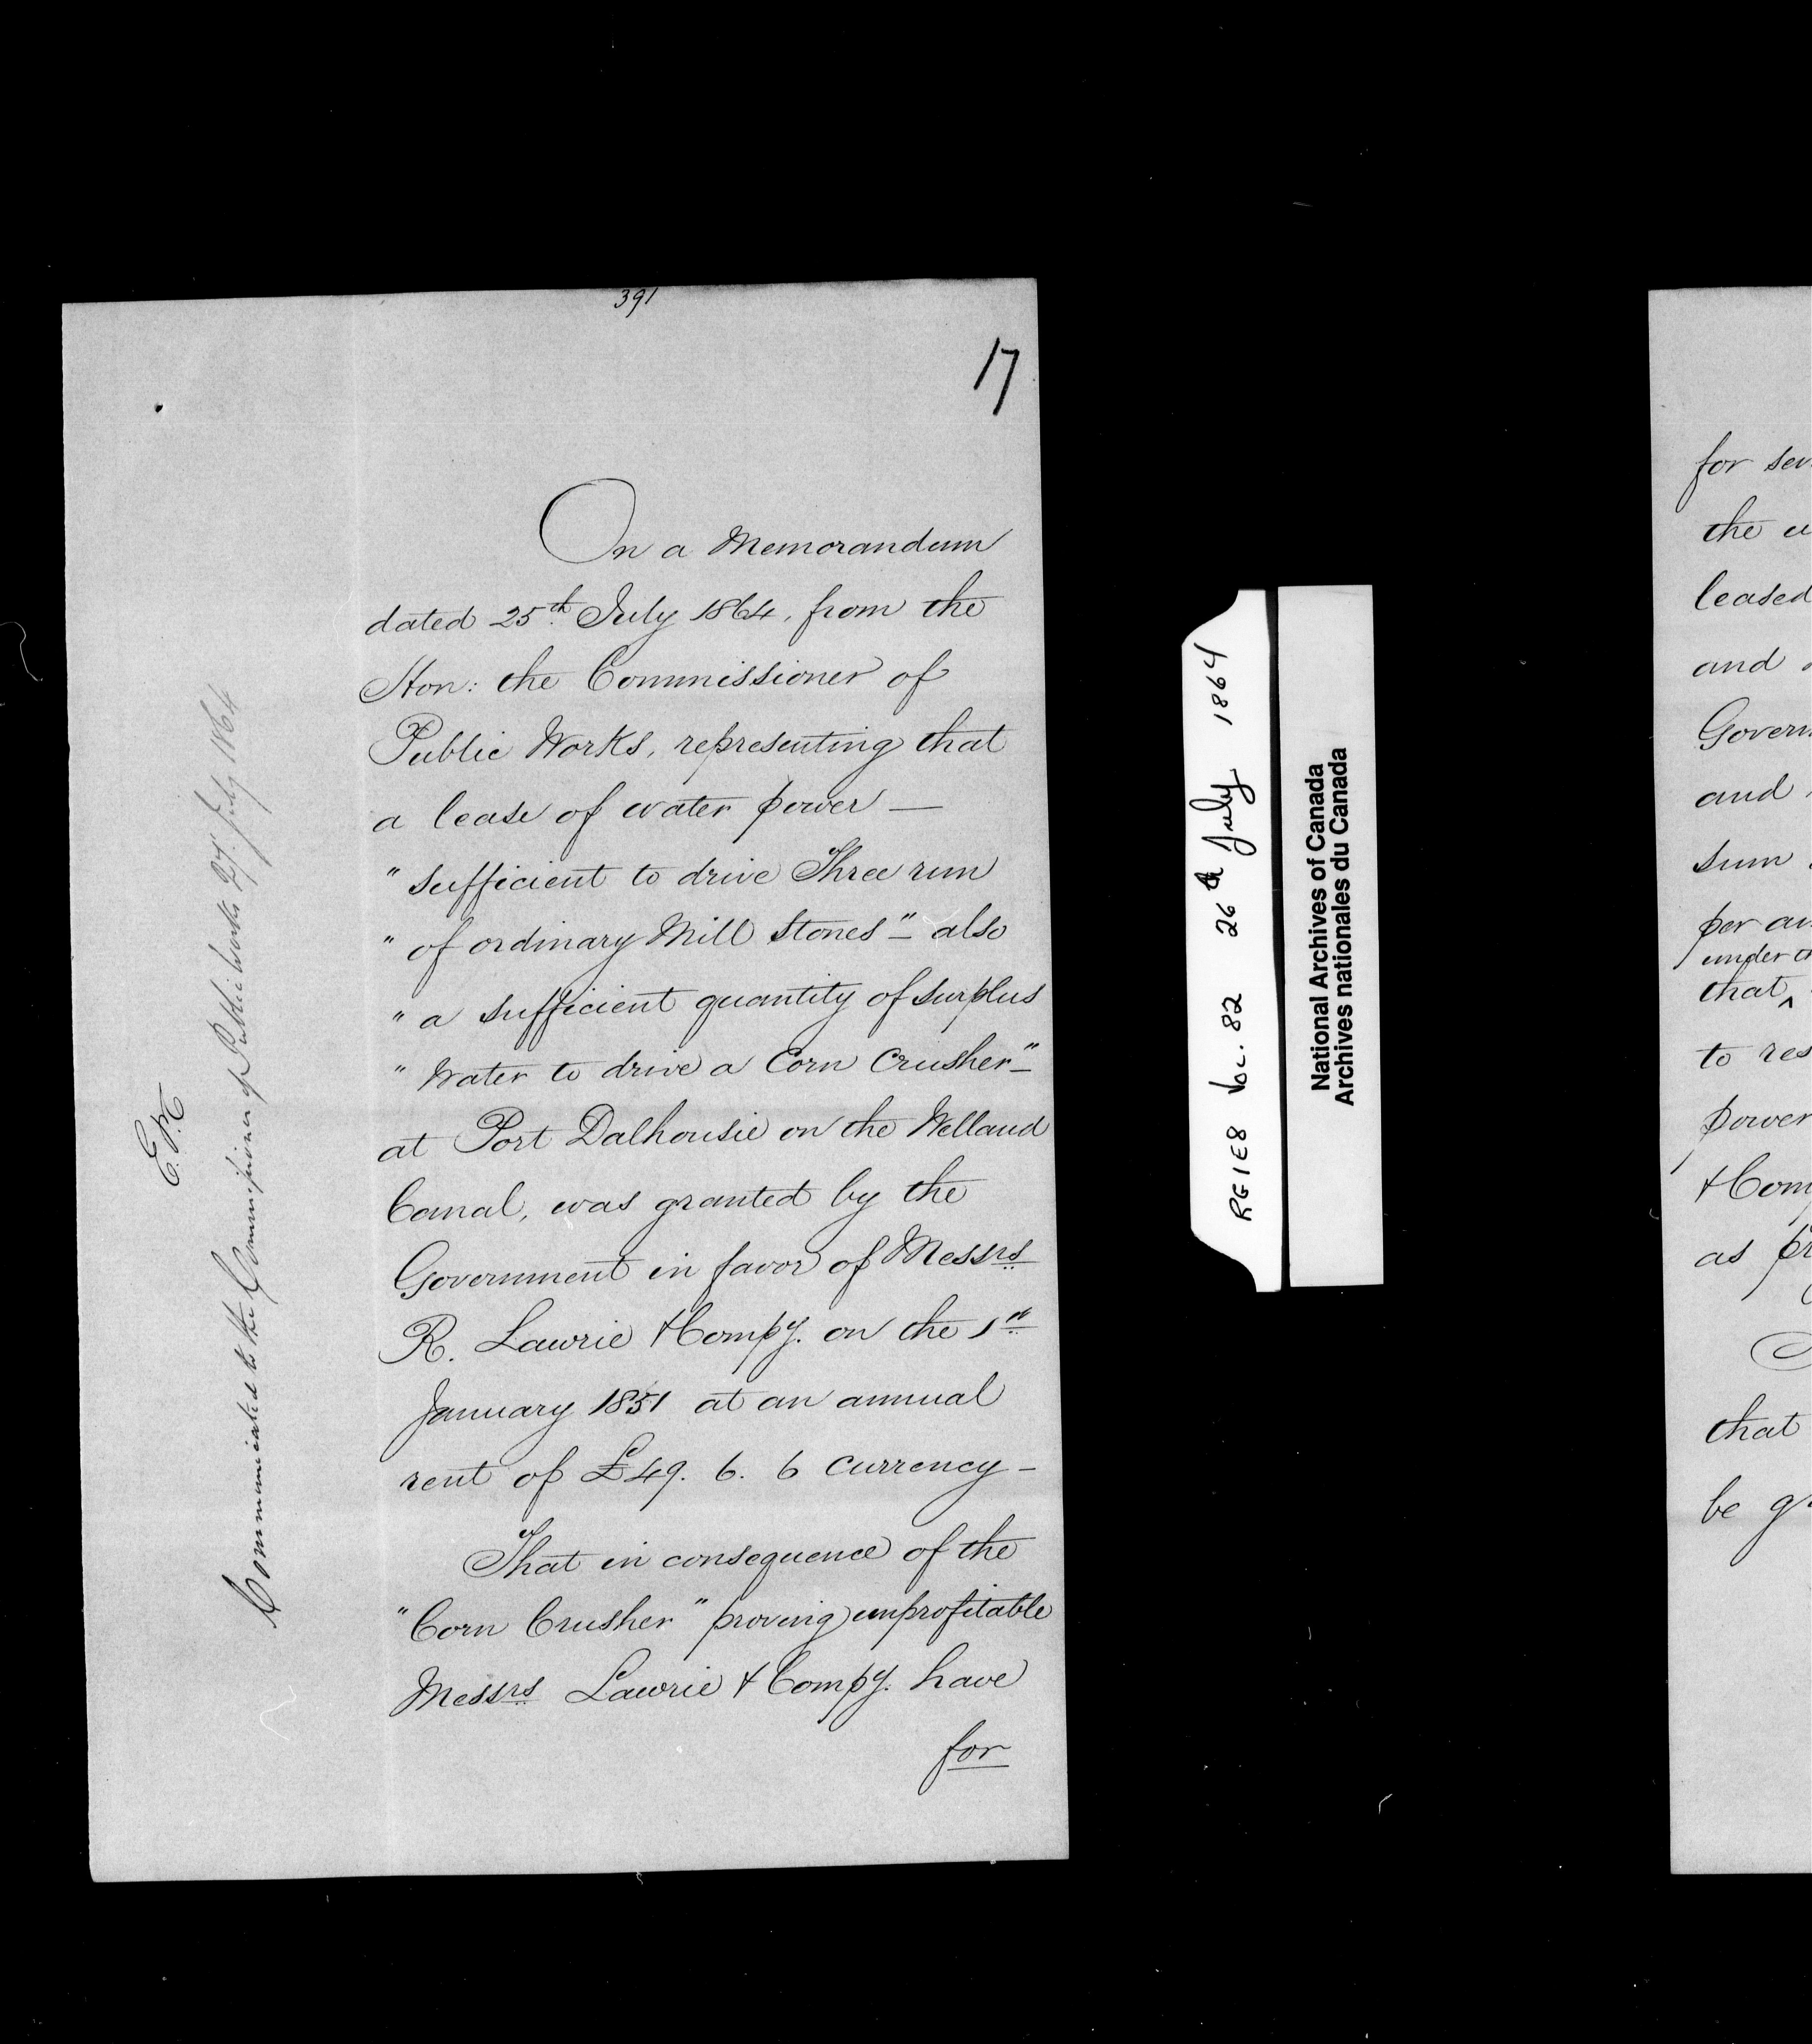 391
17
On a Memorandum
dated 25th July 1864, from the
Hon: the Commissioner of
Public Works, representing that
a lease of water power —
" sufficient to drive Three run
" of ordinary Mill Stones" – also
" a sufficient quantity of surplus
" Water to drive a Corn Crusher" –
at Port Dalhousie on the Welland
Canal, was granted by the
Government in favor of Messrs
R. Lawrie & Compy. on the 1st
January 1851 at an annual
rent of £49. 6. 6 Currency –
That in consequence of the
"Corn Crusher" proving unprofitable
Messrs Lawrie & Compy. have
for
Communicated to the Commissioner of Public Works 27. July 1864
RG1E8 Vol. 82 26 July 1864
National Archives of Canada
Archives nationales du Canada
for
the
leased
and
Govern
and
sum
per an
under
that ^
to res
power
& Com
as pr
that
be